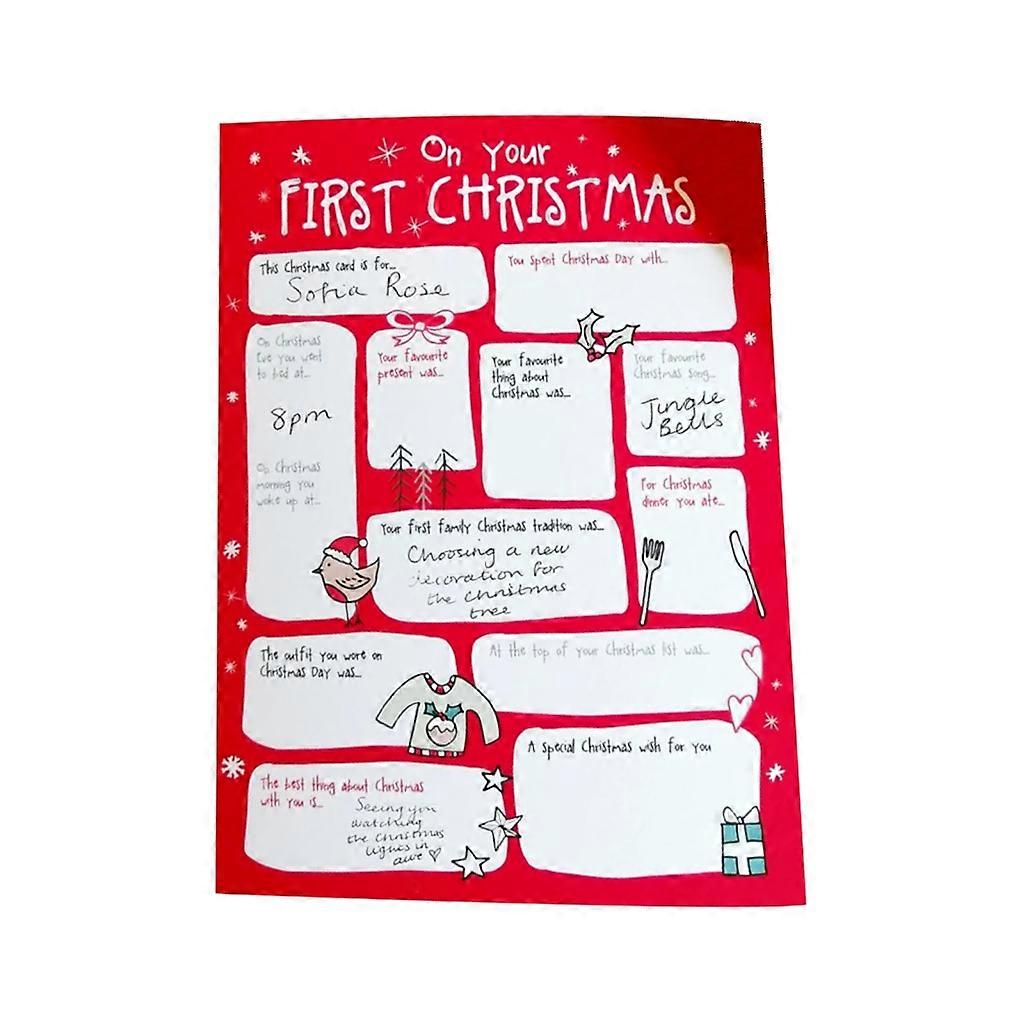 On Your
FIRST CHRISTMAS
This Christmas card is for...
Sofia Rose
You spent Christmas Day with...
On Christmas
Eve you went
to bed at...
8pm
On Christmas
morning you
woke up at...
Your favourite
present was...
Your favourite
thing about
Christmas was...
Your favourite
Christmas song...
Jingle
Bells
For Christmas
dinner you ate...
Your first family Christmas tradition was...
Choosing a new
decoration for
the christmas
tree
The outfit you wore on
Christmas Day was...
At the top of your Christmas list was...
The best thing about Christmas
with you is...
Seeing you
watching
the christmas
lights in
awe
A special Christmas wish for you